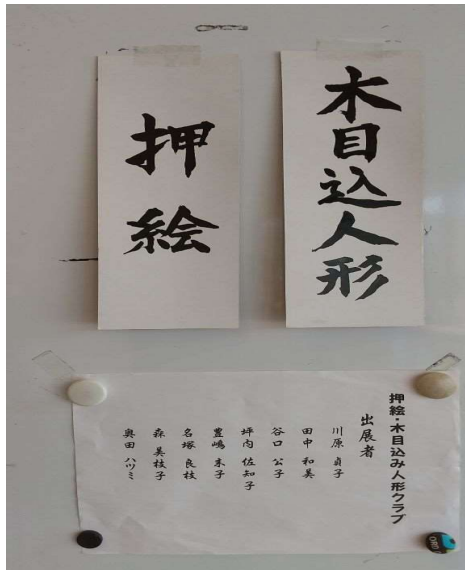 木目込人形
押絵
押絵・木目込み人形クラブ
出展者
川原 貞子
田中 和美
谷口 公子
坪内 佐知子
豊嶋 朱子
名塚 良枝
森 美枝子
奥田 ハツミ